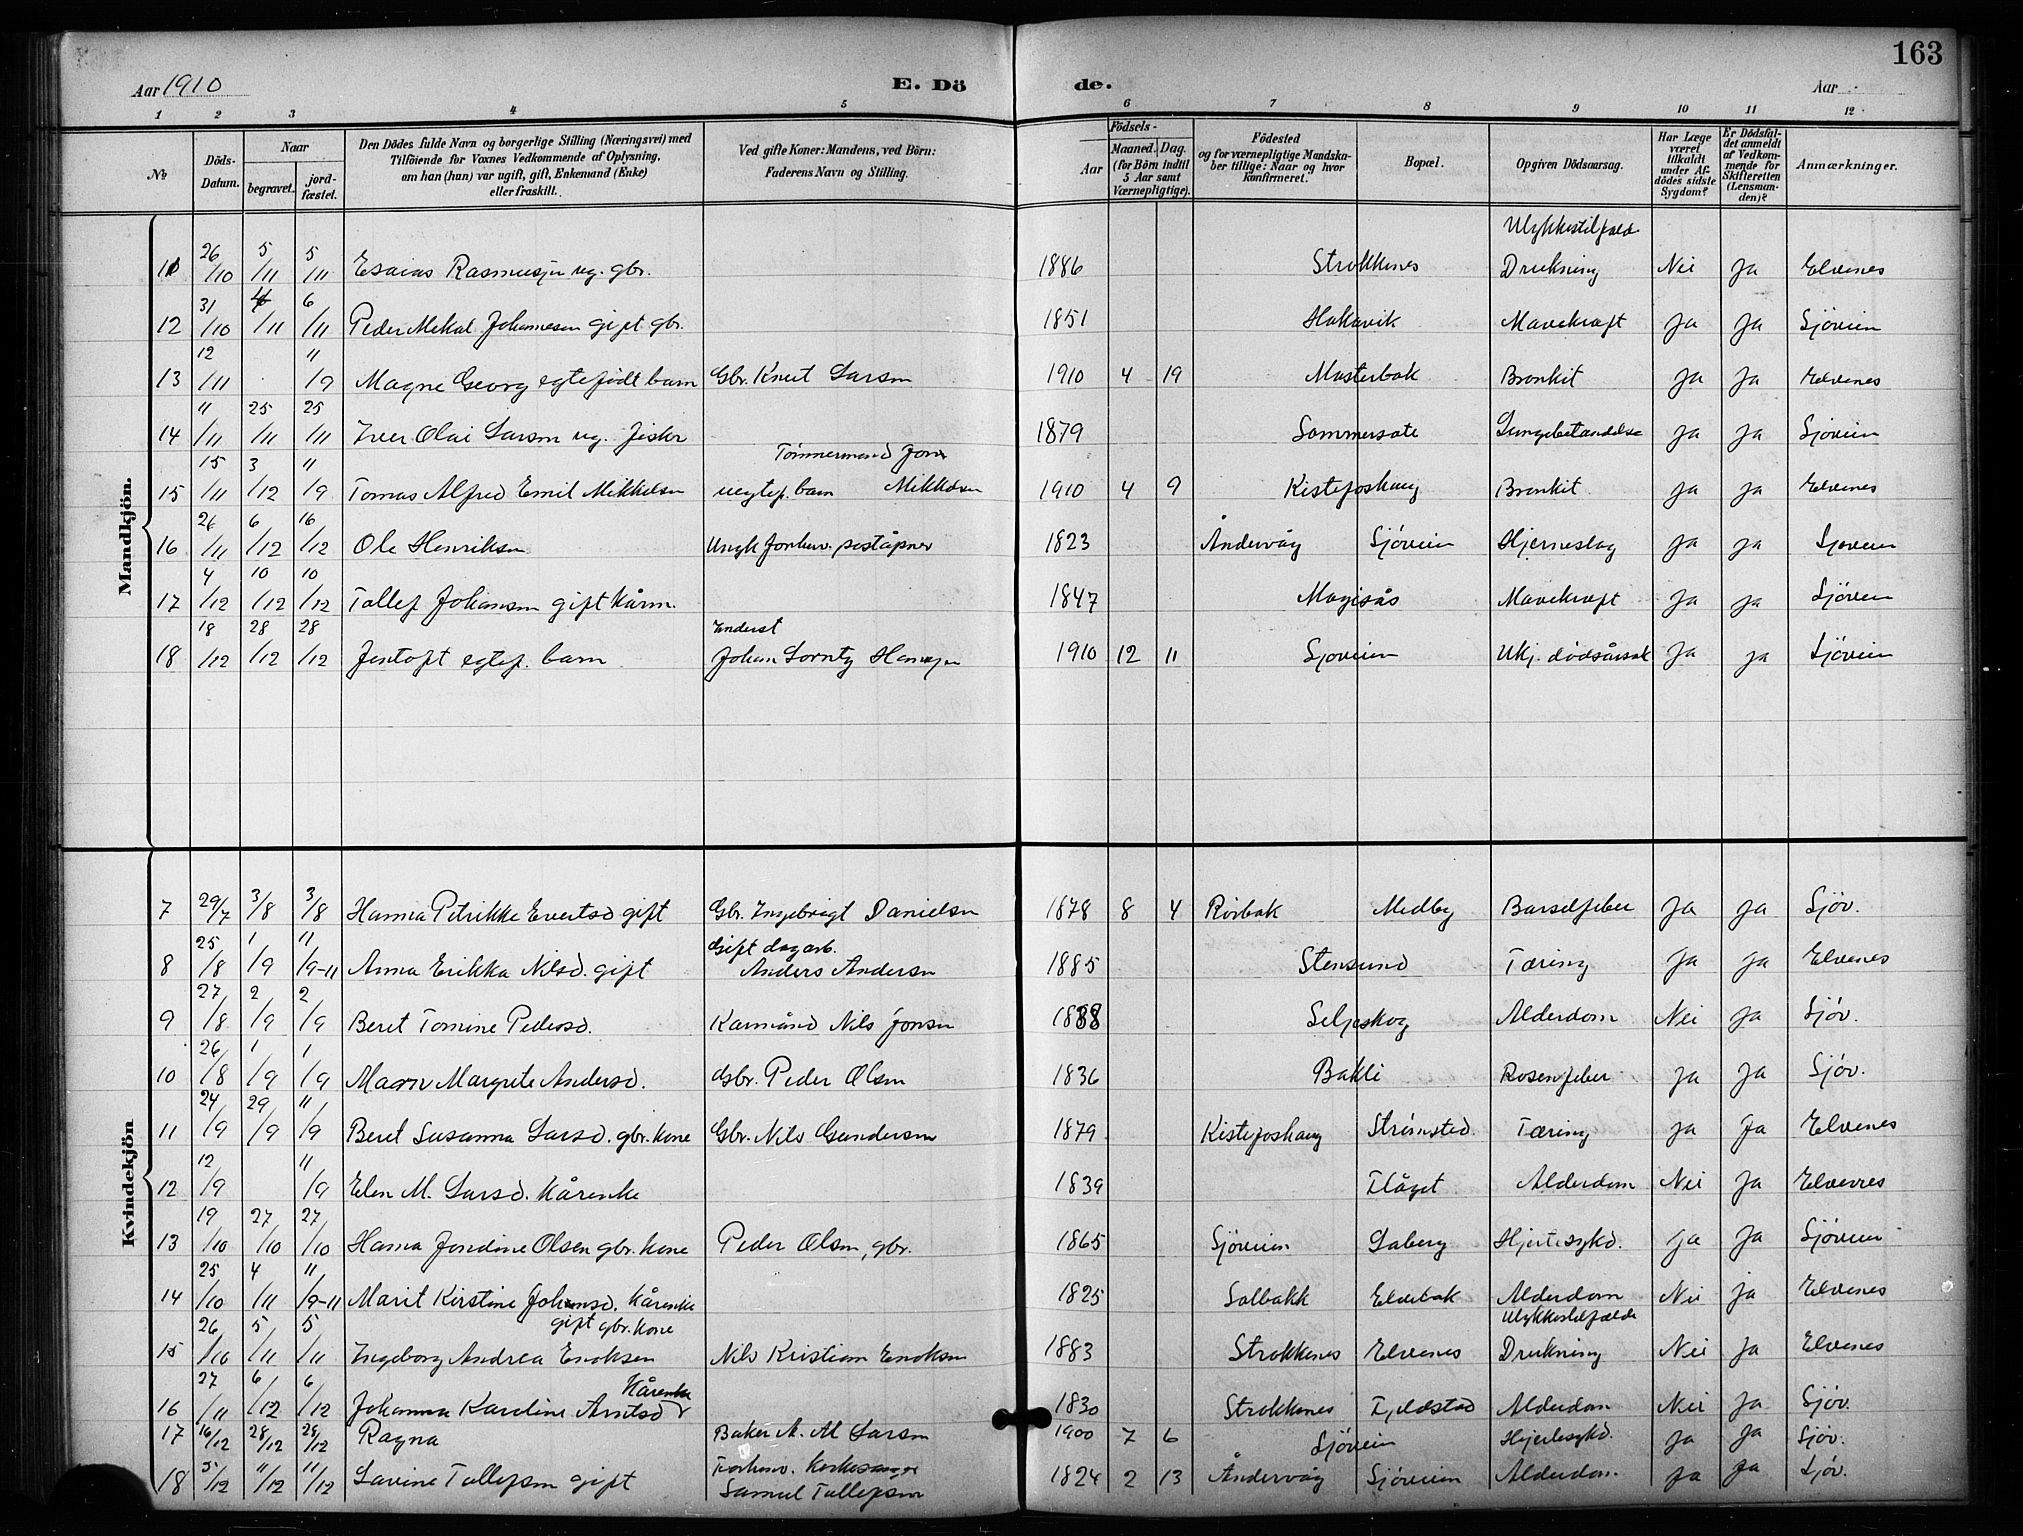 163
Aar 1910 E. Dö de. Aar
1 2 3 4 5 6 7 8 9 10 11 12
№
Döds-Datum.
Naar
begravet. jordfæstet.
Den Dödes fulde Navn og borgerlige Stilling (Næringsvei) med
Tilföiende for Voxnes Vedkommende af Oplysning,
om han (hun) var ugift, gift, Enkemand (Enke)
eller fraskilt.
Ved gifte Koner: Mandens, ved Börn:
Faderens Navn og Stilling.
Födsels-
Aar Maaned. Dag.
(for Börn indtil
5 Aar samt
Værnepligtige).
Födested
og for værnepligtige Mandskaber
tillige: Naar og hvor
konfirmeret.
Bopæl.
Opgiven Dödsaarsag.
Har Læge
været
tilkaldt
under Afdödes
sidste
Sygdom?
Er Dödsfaldet
anmeldt
af Vedkommende
for
Skifteretten
(Lensmanden)?
Anmærkninger.
Mandkjön.
Ulykkestilfælde
11 26/10 5/11 5/11 Esaias Rasmussen ug. gbr. 1886 Strokkenes Drukning Nei Ja Elvenes
12 31/10 4/11 6/11 Peder Mekal Johannesen gift gbr. 1851 Hakavik Mavekræft Ja Ja Sjøveien
13 12/11 11/9 Magne Georg egtefødt barn Gbr. Knut Larsen 1910 4 19 Masterbak Bronkit Ja Ja Elvenes
14 11/11 25/11 25/11 Iver Olai Larsen ug. fisker 1879 Sommersæte Lungebetændelse Ja Ja Sjøveien
Tömmermand Jon
15 15/11 3/12 11/9 Tomas Alfred Emil Mikkelsen uegtef. barn Mikkelsen 1910 4 9 Kistefoshaug Bronkit Ja Ja Elvenes
16 26/11 6/12 16/12 Ole Henriksen Forhenv. poståpner 1823 Åndervåg Sjøveien Hjerneslag Ja Ja Sjøveien
17 4/12 10/12 10/12 Tollef Johansen gift kårm. 1847 Mavekræft Ja Ja Sjøveien
18 18/12 28/12 28/12 Jentoft egtef. barn Johan Lorntz Hansen 1910 12 11 Sjøveien Ukj. dødsårsak Ja Ja Sjøveien
Kvindekjön
7 29/7 3/8 3/8 Hanna Petrikke Evertsd gift Gbr. Ingebrigt Danielsen 1878 8 4 Rörbak Medby Barselfeber Ja Ja Sjöv.
Gift dagarb.
8 25/8 1/9 11/9-11 Anna Erikka Nilsd. gift Anders Andersen 1885 Stensund Tæring Ja Ja Elvenes
9 27/8 2/9 2/9 Beret Tomine Pedersd. Kårmånd Nils Jonsen 1838 Seljeskog Alderdom Nei Ja Sjöv.
10 26/8 1/9 1/9 Maren Margrete Andersd. Gbr. Peder Olsen 1836 Bakli Rosenfeber Ja Ja Sjöv.
11 24/9 29/9 11/9 Beret Susanna Larsd. gbr. kone Gbr. Nils Gundersen 1879 Kistefoshaug Strömsted Tæring Ja Ja Elvenes
12 12/9 11/9 Elen M. Larsd. Kårenke 1839 Flåget Alderdom Nei Ja Elvenes
13 19/10 27/10 27/10 Hanna Jondine Olsen gbr. kone Peder Olsen, gbr. 1865 Sjöveien Laberg Hjertesykd. Ja Ja Sjöveien
14 25/10 4/11 11/9-11 Marit Kirstine Johansd. Kårenke 1825 Salbakk Elvebak Alderdom Nei Ja Elvenes
gift gbr. kone Ulykkestilfælde
15 26/10 5/11 5/11 Ingeborg Andrea Enoksen Nils Kristian Enoksen 1883 Strokkenes Elvenes Drukning Nei Ja Elvenes
Kårenke
16 27/11 6/12 6/12 Johanna Karoline Arntsd 1830 Strokkenes Alderdom Nei Ja Sjöv.
17 16/12 28/12 28/12 Ragna Baker A. M. Larsen 1900 7 6 Sjöveien Hjertesykd. Ja Ja Sjöv.
18 5/12 11/12 11/12 Lavine Tollefsen gift Forhenv. kirkesanger 1824 2 13 Åndervåg Sjöveien Alderdom Ja Ja Sjöv.
Samuel Tollefsen